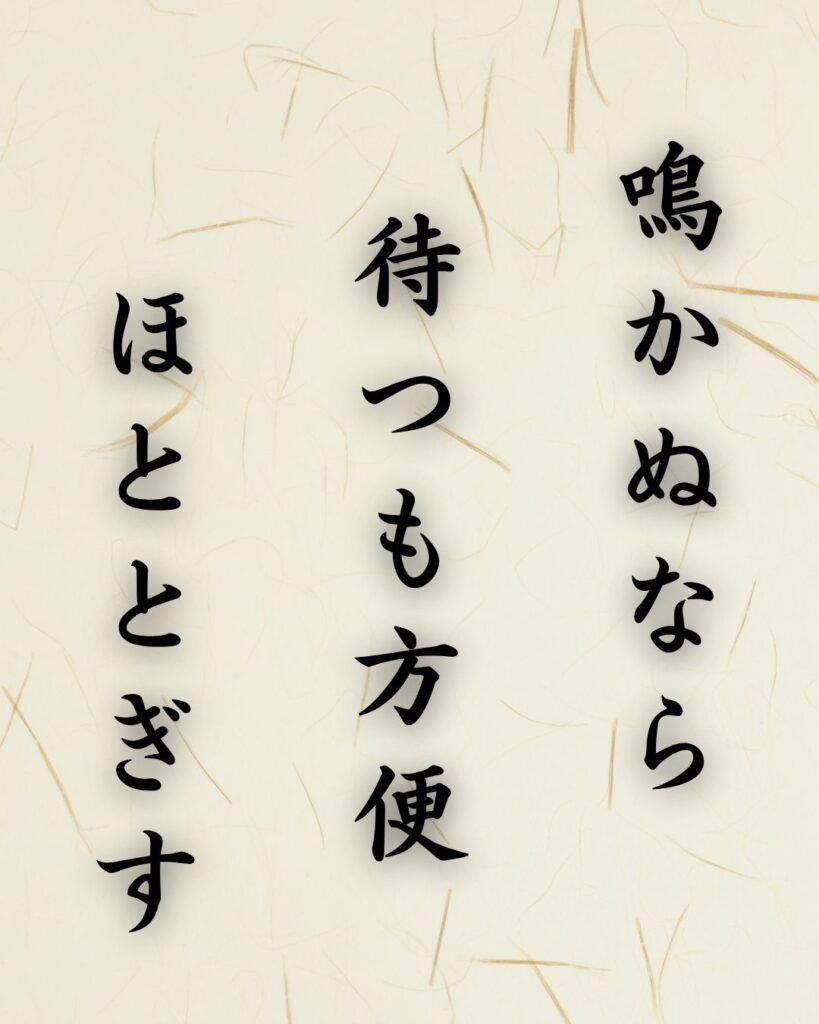 鳴かぬなら
待つも方便
ほととぎす